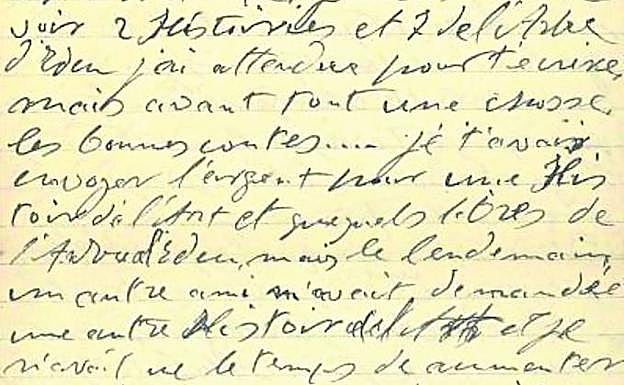 voir 2 Histoires et 7 de l'Arbre
d'Eden j'ai attendue pour t'ecrire,
mais avant tout une chosse,
les bonnes contes.... je t'avais
envoyer l'argent pour une His
toire de l'Art et quequels libres de
l'Arbre d'Eden, mais le lendemain,
un autre ami m'avait demandée
une autre Histoire de l'Art et je
n'avait ue le temps de aumenter